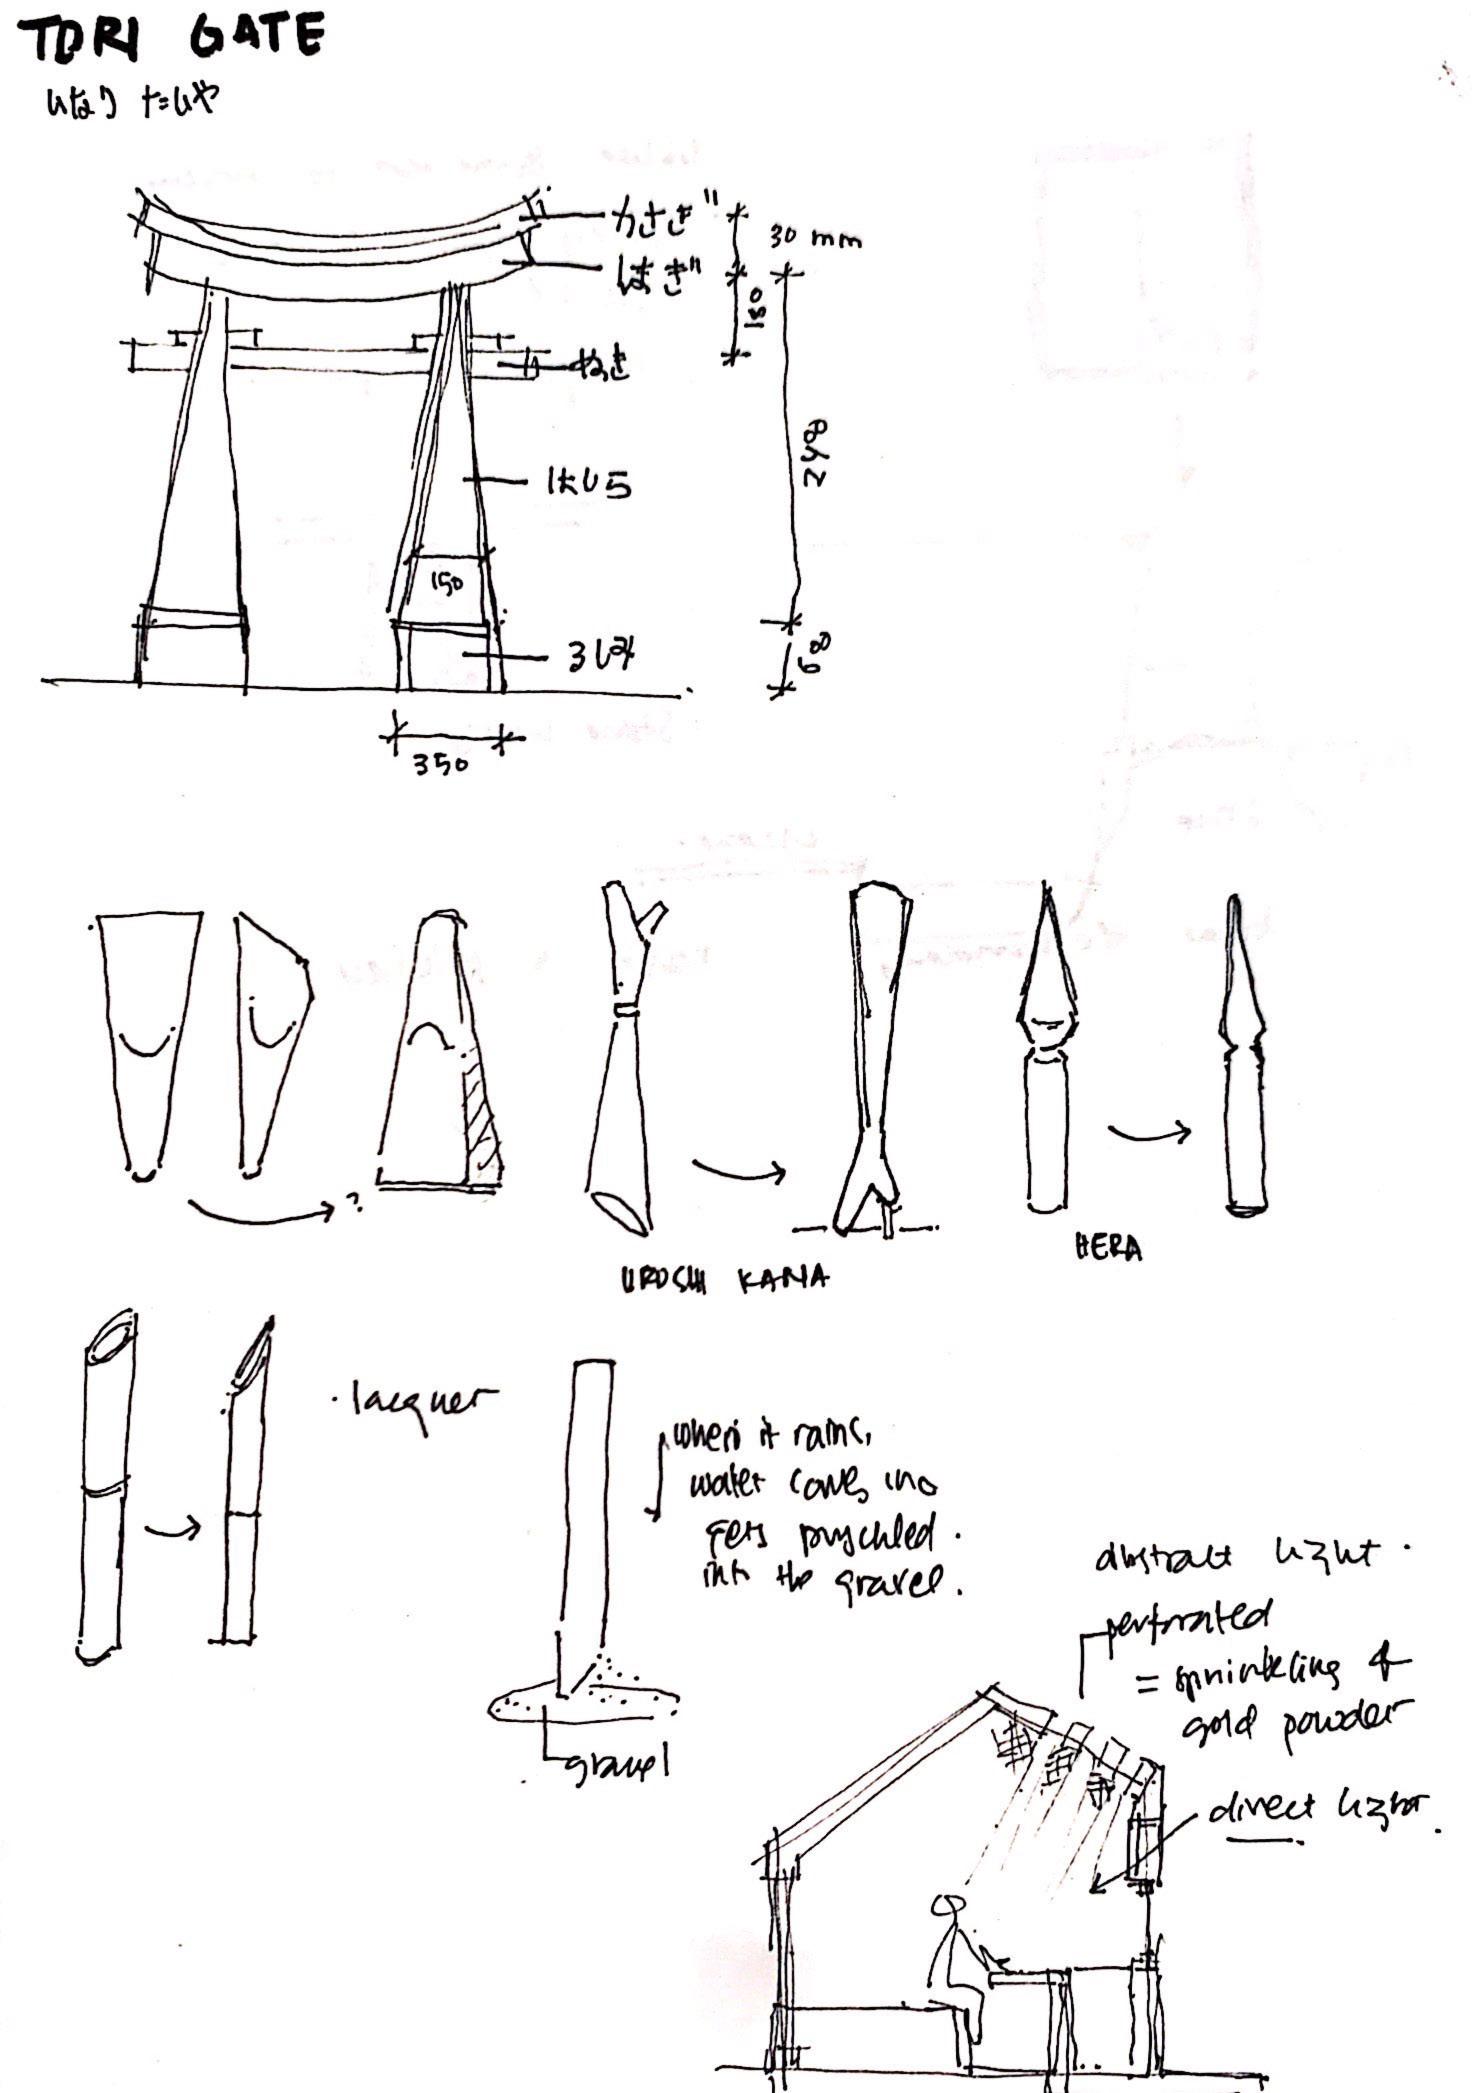 TORI GATE
いなり たいしゃ
かさぎ
30 mm
はぎ
180
ぬき
2400
はしら
150
600
350
UROSHI KANA
HERA
lacquer
when it rains,
water comes, 
gets
into the gravel.
gravel
abstract light.
perforated
= sprinkling of
gold powder
direct light.